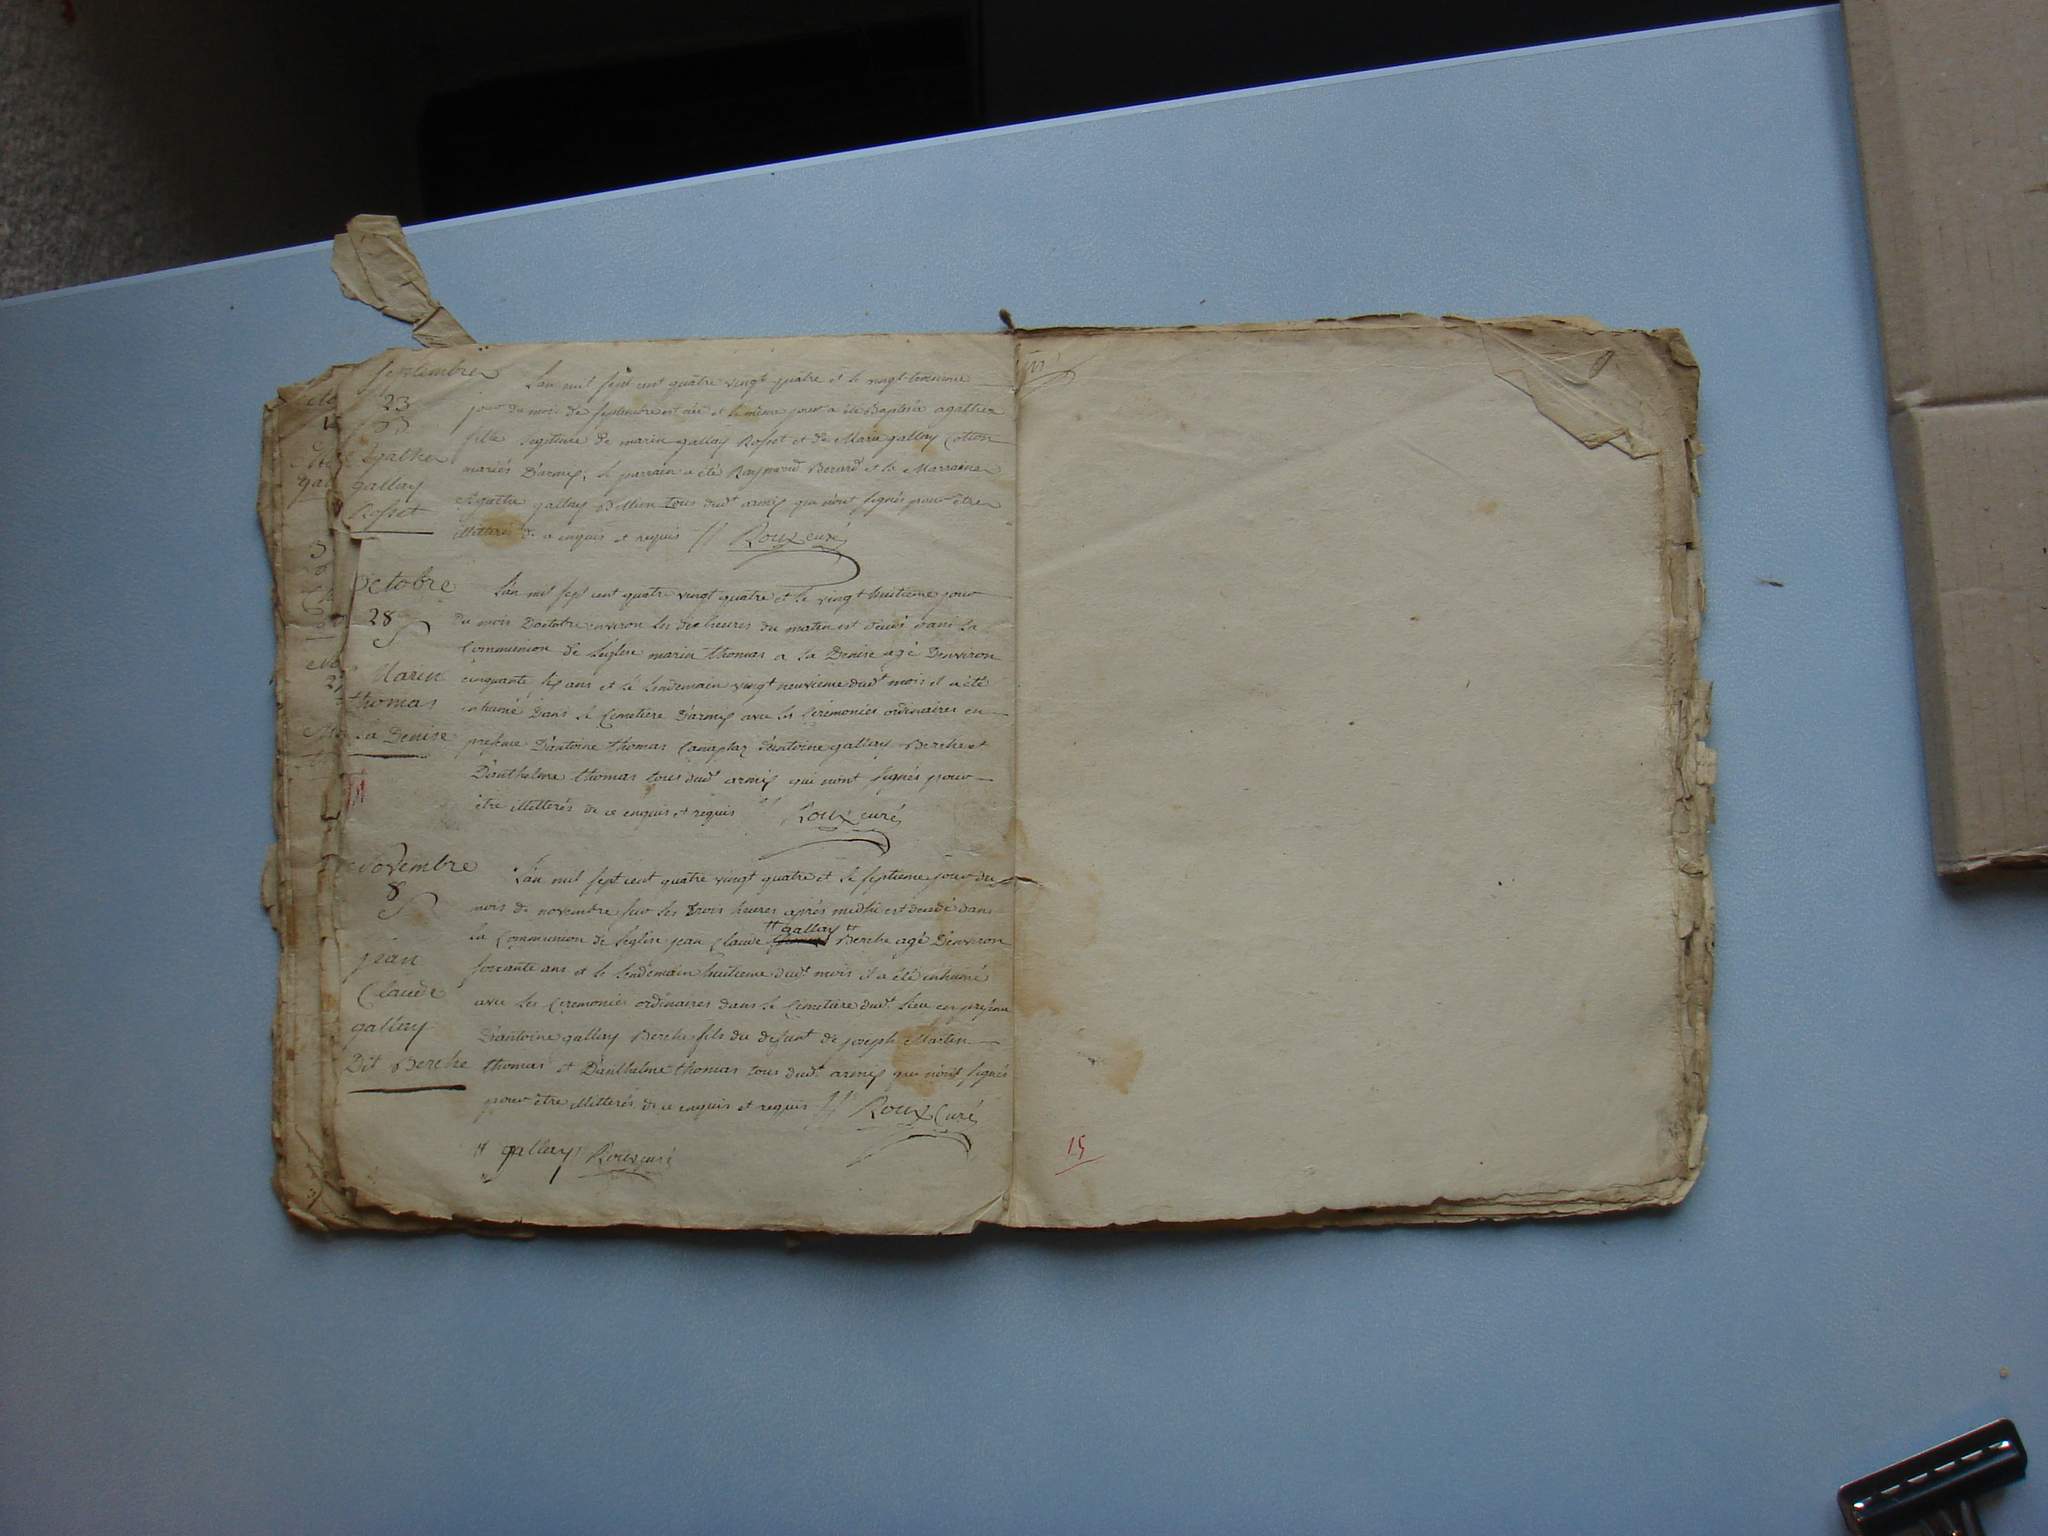 Septembre
23
Agathe
gallay
Rosset
L'an mil sept cent quatre vingt quatre et le vingt troisieme
jour du mois de septembre est née et le même jour a été Baptisée agathe
fille legitime de marin gallay Rosset et de Marie gallay Cottin
mariés D'armix, le parrain a été Raymond Berard et la Marraine
Agathe gallay tous dudt armix qui n'ont signés pour être
illitterés de ce enquis et requis // Roux curé
Octobre
28
Marin
thomas
La Denise
L'an mil sept cent quatre vingt quatre et le vingt huitieme jour
du mois D'octobre environ les dix heures du matin est decedé dans la
Communion de L'eglise marin thomas a La Denise agé D'environ
cinquante six ans et le lendemain vingt neuvieme dudt mois il a été
inhumé Dans le Cemetiere D'armix avec les Ceremonies ordinaires en
presence D'antoine thomas Canaplaz d'antoine gallay Berche et
D'anthelme thomas tous dudt armix qui n'ont signés pour
être illitterés de ce enquis et requis // Roux curé
Novembre
8
jean
Claude
gallay
Dit Berche
L'an mil sept cent quatre vingt quatre et le septieme jour du
mois de novembre sur les trois heures après midhi est decedé dans
la Communion de L'eglise jean Claude # gallay # Berche agé D'environ
soixante ans et le lendemain huitieme dudt mois il a été inhumé
avec les Ceremonies ordinaires dans le Cimetiere dudt Lieu en presence
D'antoine gallay Berche fils du defunt de joseph Martin
thomas et D'anthelme thomas tous dudt armix qui n'ont signés
pour être illitterés de ce enquis et requis // Roux Curé
# gallay Roux curé
15